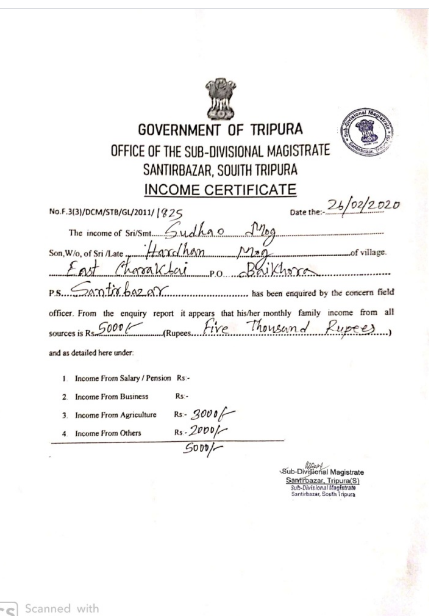 GOVERNMENT OF TRIPURA
OFFICE OF THE SUB-DIVISIONAL MAGISTRATE
SANTIRBAZAR, SOUITH TRIPURA
INCOME CERTIFICATE
No.F.3(3)/DCM/STB/GL/2011/ 1825 Date the:- 26/02/2020
The income of Sri/Smt. Sudhao Mog
Son,W/o, of Sri /Late Hardhan Mog of village.
East Charakbai P.O Baikhora
P.S. Santirbazar has been enquired by the concern field
officer. From the enquiry report it appears that his/her monthly family income from all
sources is Rs. 5000/- (Rupees. Five Thousand Rupees)
and as detailed here under:
1 Income From Salary / Pension Rs:-
2 Income From Business Rs:-
3. Income From Agriculture Rs:- 3000/-
4 Income From Others Rs - 2000/-
5000/-
Sub-Divisional Magistrate
Santirbazar, Tripura(S)
Sub-Divisional Magistrate
Santirbazar, South Tripura
CS Scanned with